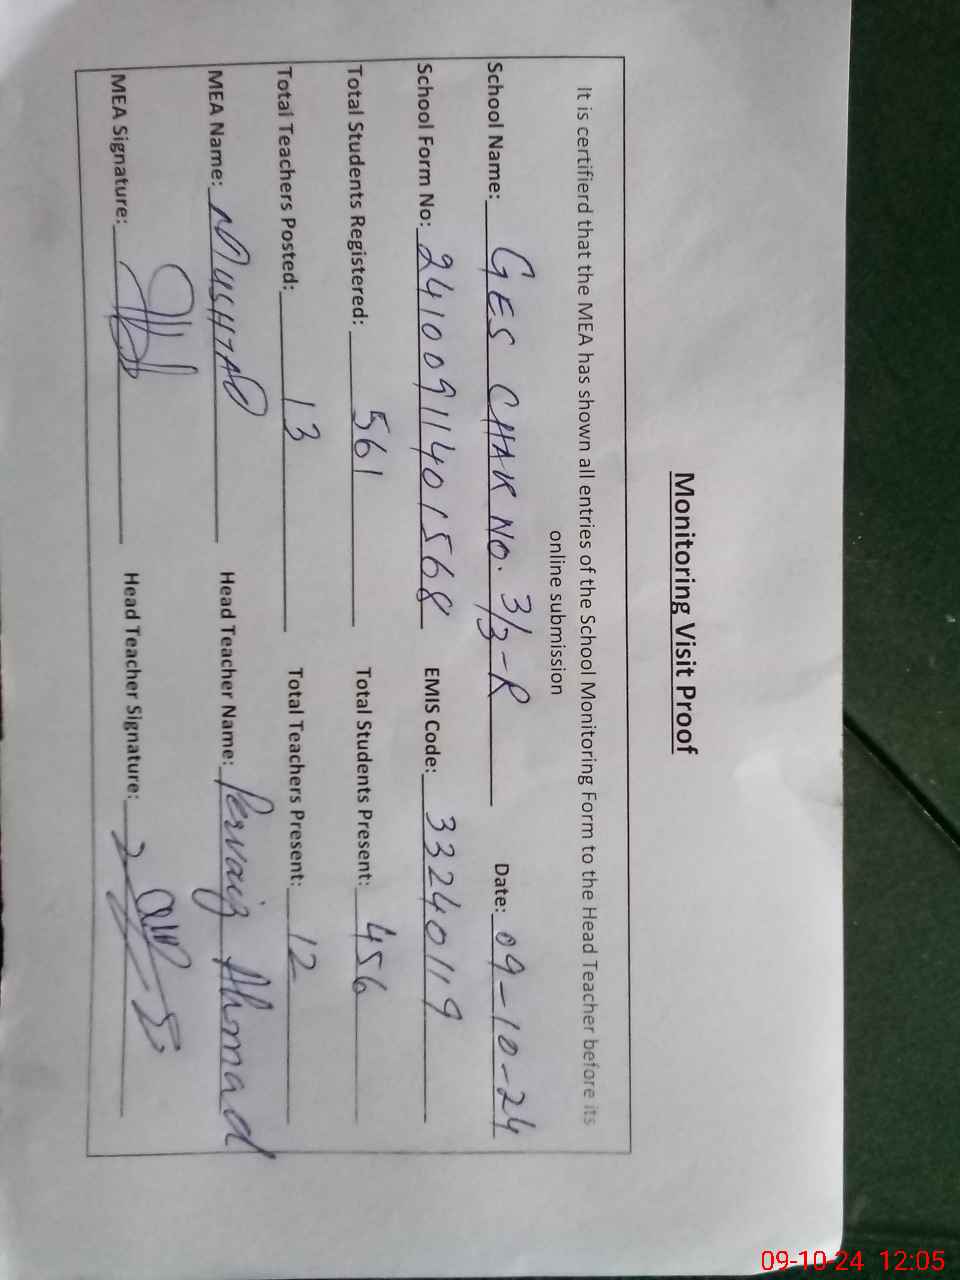 Monitoring Visit Proof
It is certifierd that the MEA has shown all entries of the School Monitoring Form to the Head Teacher before its
online submission
School Name: GES CHAK NO. 3/3-R Date: 09-10-24
School Form No: 24100911401568 EMIS Code: 33240119
Total Students Registered: 561 Total Students Present: 456
Total Teachers Posted: 13 Total Teachers Present: 12
MEA Name: MUSHTAQ Head Teacher Name: Pervaiz Ahmad
MEA Signature: Head Teacher Signature:
09-10-24 12:05